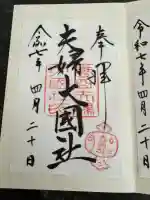 令和七年四月二十日
奉拝
夫婦大國社
令和七年 四月 二十日